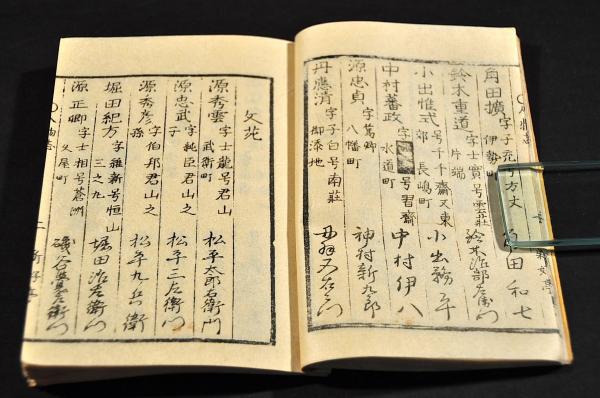 角田擴 字子 号方丈 伊勢町 角田和七
鈴木重道 字士實号雲荘 片端 鈴木治部左衛門
小出惟式 号千千齋又東郊 長嶋町 小出務平
中村蕃政 字 号習齋 水道町 中村伊八
源忠貞 字蔦卿 八幡町 神村新九郎
丹應清 字子白号南莊 御添地
文苑
源秀雲 字士龍号君山 武衛町 松平太郎右衛門
源忠武 字純臣君山之子 松平三左衛門
源秀彦 字伯邦君山之孫 松平九兵衛
堀田紀方 字雅新号恒山 三之丸 堀田治左衛門
源正卿 字士相号蒼洲 久屋町 磯谷 左衛門